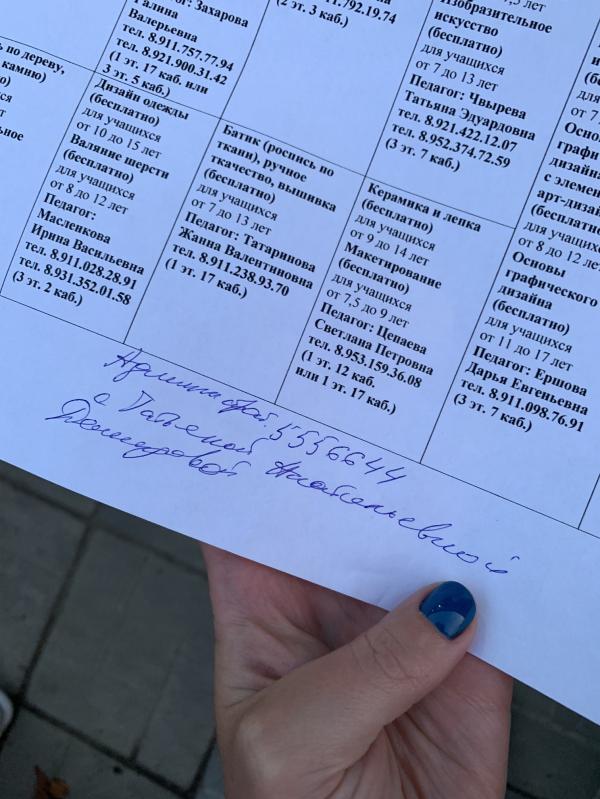 по дереву,
камню)
Галина
Валерьевна
тел. 8.911.757.77.94
тел. 8.921.900.31.42
(1 эт. 17 каб. или
3 эт. 5 каб.)
Дизайн одежды
(бесплатно)
для учащихся
от 10 до 15 лет
Валяние шерсти
(бесплатно)
для учащихся
от 8 до 12 лет
Педагог:
Масленкова
Ирина Васильевна
тел. 8.911.028.28.91
тел. 8.931.352.01.58
(3 эт. 2 каб.)
(2 эт. 3 каб.)
Батик (роспись по
ткани), ручное
ткачество, вышивка
(бесплатно)
для учащихся
от 7 до 13 лет
Педагог: Татаринова
Жанна Валентиновна
тел. 8.911.238.93.70
(1 эт. 17 каб.)
Изобразительное
искусство
(бесплатно)
для учащихся
от 7 до 13 лет
Педагог: Чвырева
Татьяна Эдуардовна
тел. 8.921.422.12.07
тел. 8.952.374.72.59
(3 эт. 7 каб.)
Керамика и лепка
(бесплатно)
для учащихся
от 9 до 14 лет
Макетирование
(бесплатно)
для учащихся
от 7,5 до 9 лет
Педагог: Цепаева
Светлана Петровна
тел. 8.953.159.36.08
(1 эт. 12 каб.
или 1 эт. 17 каб.)
для учащихся
от 8 до 12 лет
Основы
графического
дизайна
(бесплатно)
для учащихся
от 11 до 17 лет
Педагог: Ершова
Дарья Евгеньевна
тел. 8.911.098.76.91
(3 эт. 7 каб.)
5556644
с Татьяной Анатольевной